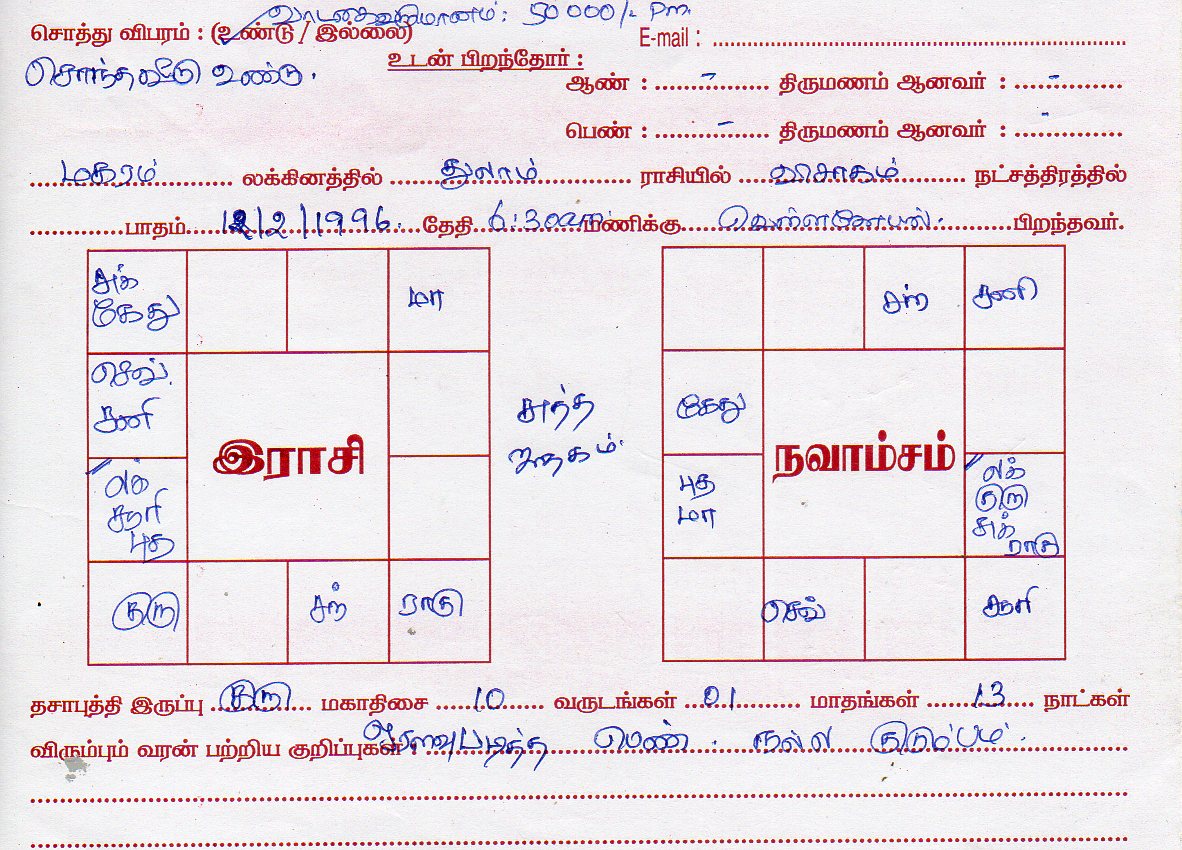 வாடகைவருமானம் : 50 000/- Pm.
சொத்து விபரம் : (உண்டு / இல்லை) E-mail :
சொந்தவீடு உண்டு. உடன் பிறந்தோர் :
ஆண் : - திருமணம் ஆனவர் : -
பெண் : - திருமணம் ஆனவர் : -
மகரம் லக்கினத்தில் துலாம் ராசியில் விசாகம் நட்சத்திரத்தில்
பாதம் /2/1996. தேதி 6:30 மணிக்கு பிறந்தவர்.
சுக் மா சந் சனி
கேது
செவ். கேது
சனி
சுத்த
ஜாதகம்.
இராசி நவாம்சம்
லக் புத லக்
சூரி மா குரு
புத சுக்
ராகு
குரு சந் ராகு செவ் சூரி
தசாபுத்தி இருப்பு குரு மகாதிசை 10 வருடங்கள் 01 மாதங்கள் 13 நாட்கள்
விரும்பும் வரன் பற்றிய குறிப்புகள் : பெண். நல்ல குடும்பம்.